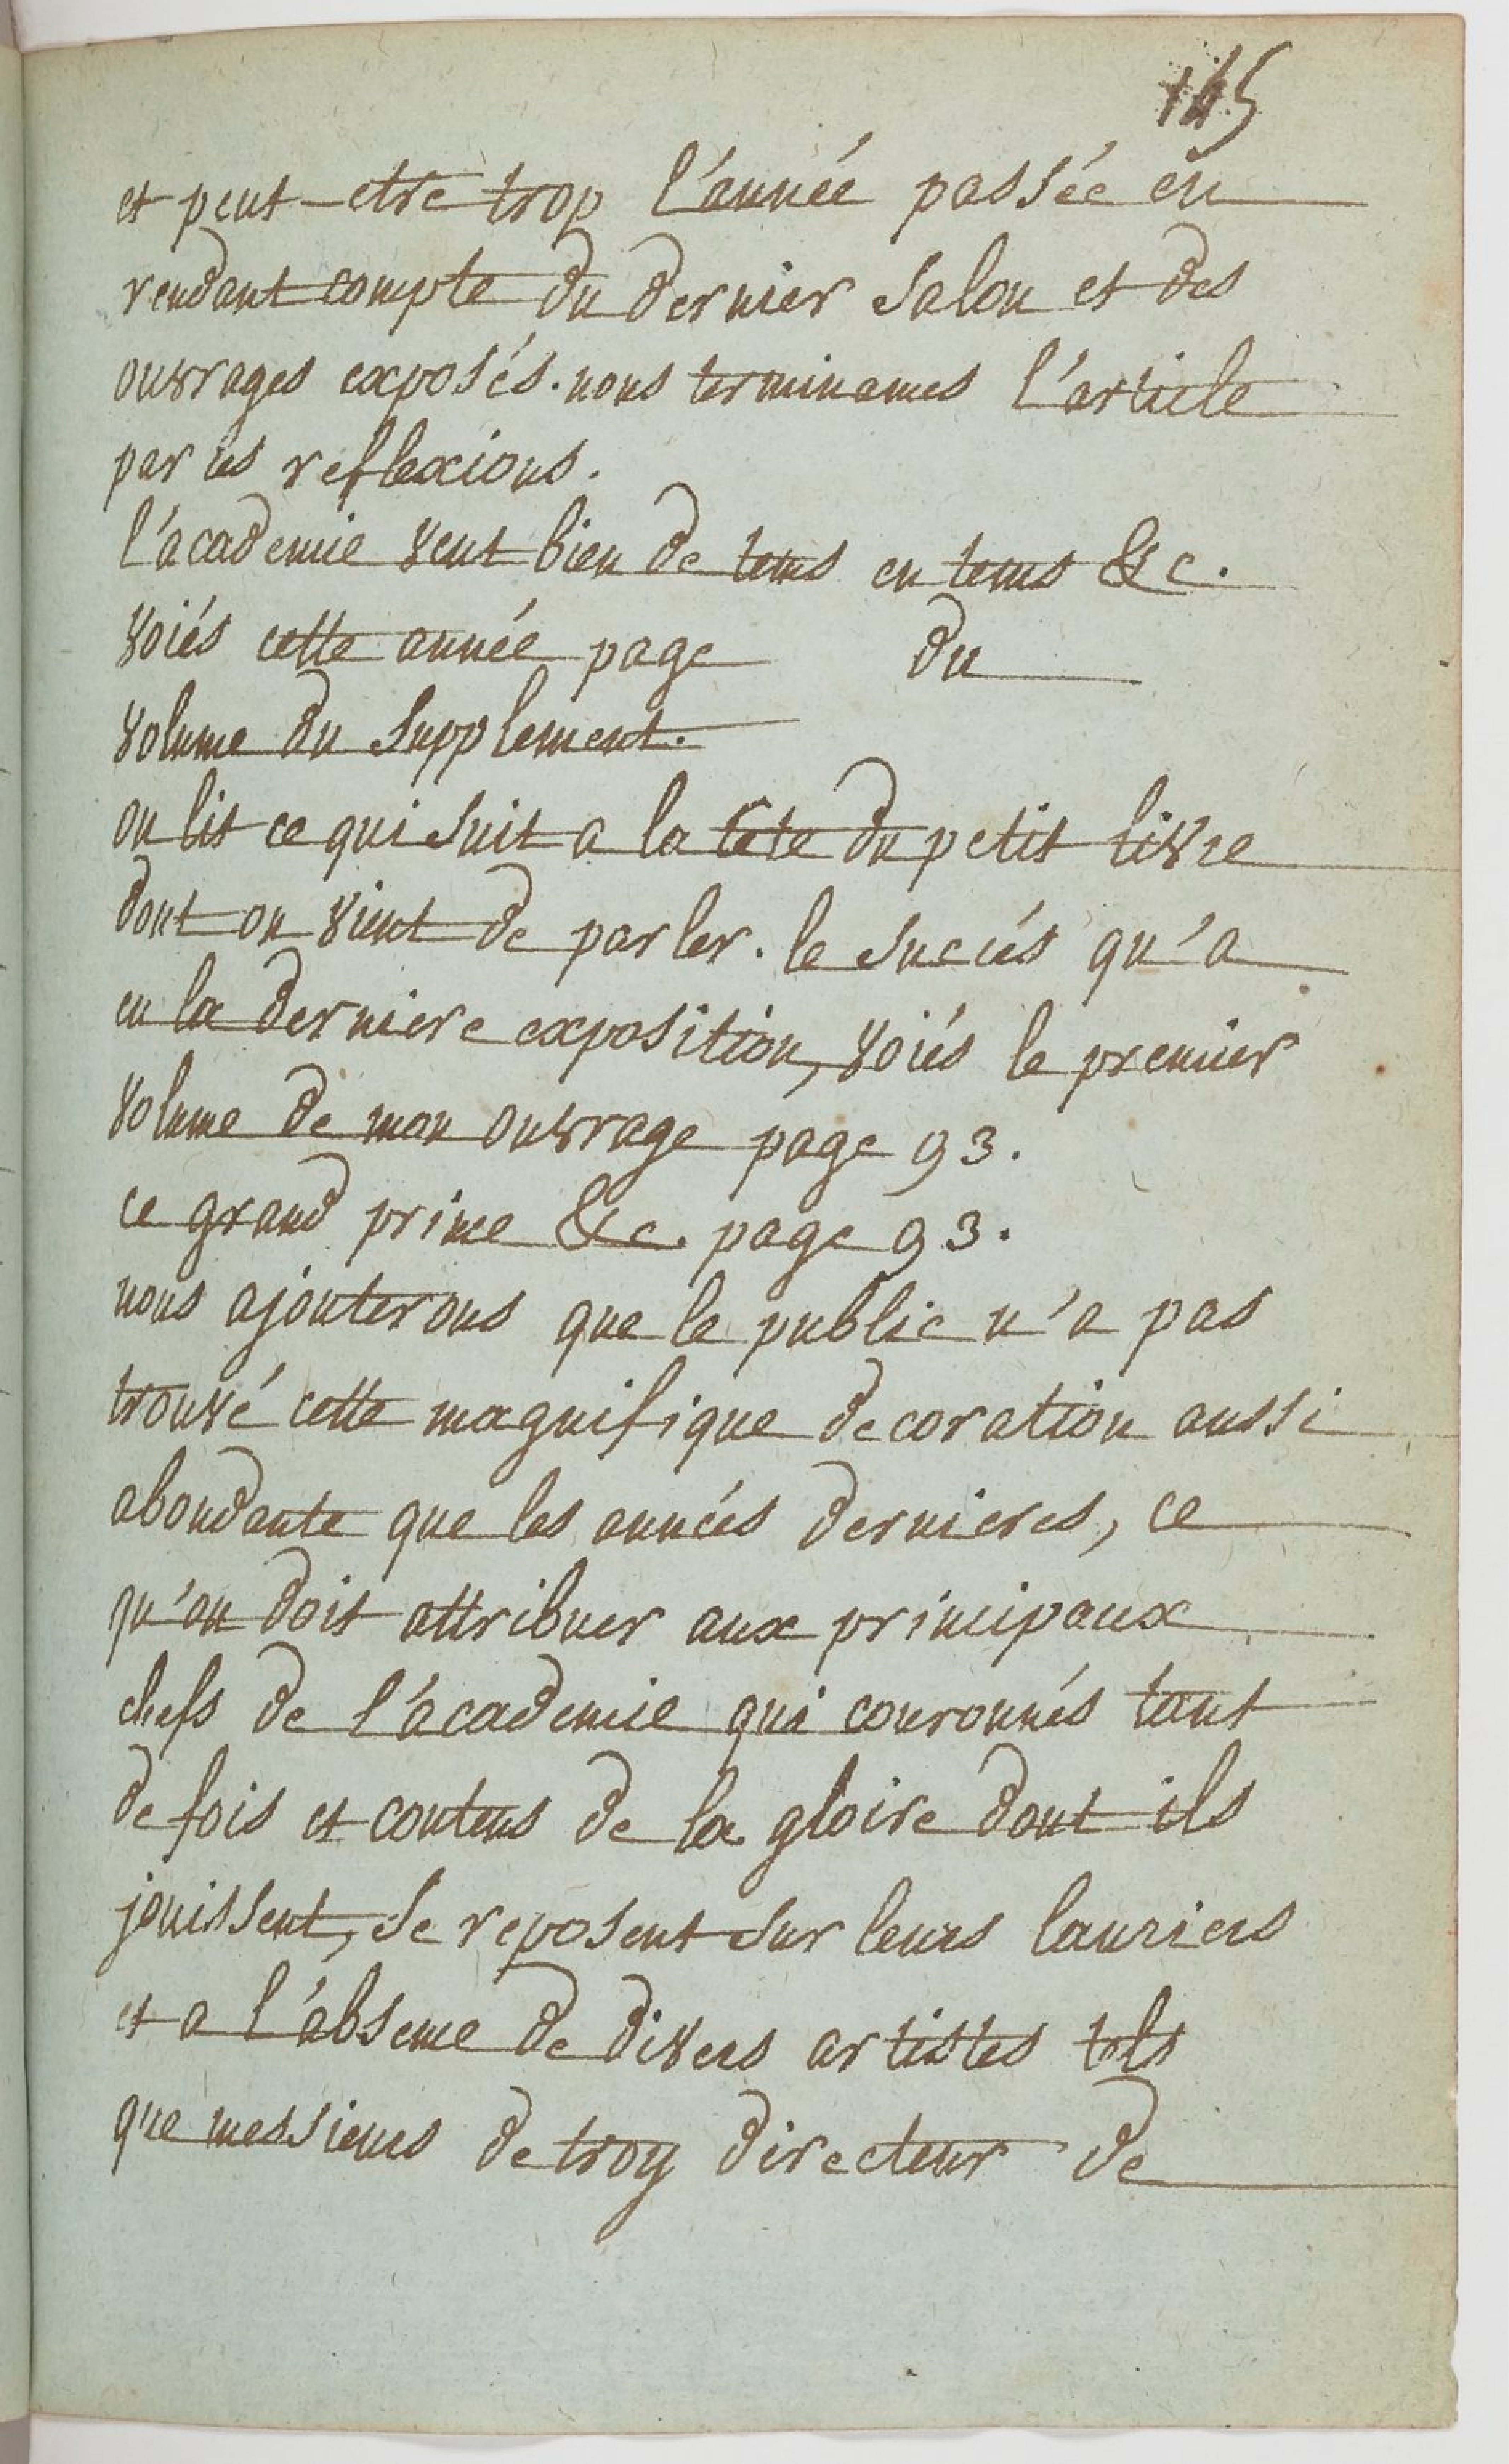 145
et peut-etre trop l'année passée en
rendant compte du dernier salon et des
ouvrages exposés. nous terminames l'article
par ces reflexions.
l'academie veut bien de tems en tems &c.
voiés cette année page du
volume du supplement.
on lit ce qui suit a la tete du petit livre
dont on vient de parler. le succés qu'a
eu la derniere exposition, voiés le premier
volume de mon ouvrage page 93.
ce grand prince &c. page 93.
nous ajouterons que le public n'a pas
trouvé cette magnifique decoration aussi
abondante que les années dernieres, ce
qu'on doit attribuer aux principaux
chefs de l'academie qui couronnés tant
de fois et contens de la gloire dont ils
jouissent, se reposent sur leurs lauriers
et a l'absence de divers artistes tels
que messieurs de troy directeur de